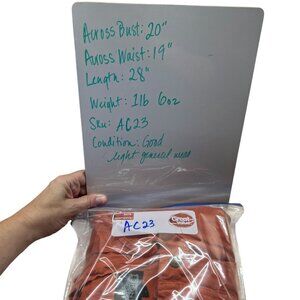 Across Bust: 20"
Across Waist: 19"
Length: 28"
Weight: 1lb 6oz
Sku: AC23
Condition: Good
light general wear
AC23
Great